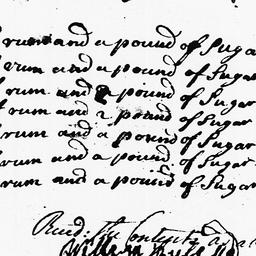 rum and a pound of Suga
rum and a pound of Sugar
rum and a pound of Sugar
rum and a pound of Sugar
rum and a pound of Sugar
rum and a pound of Sugar
rum and a pound of Sugar
Recd: the Contents